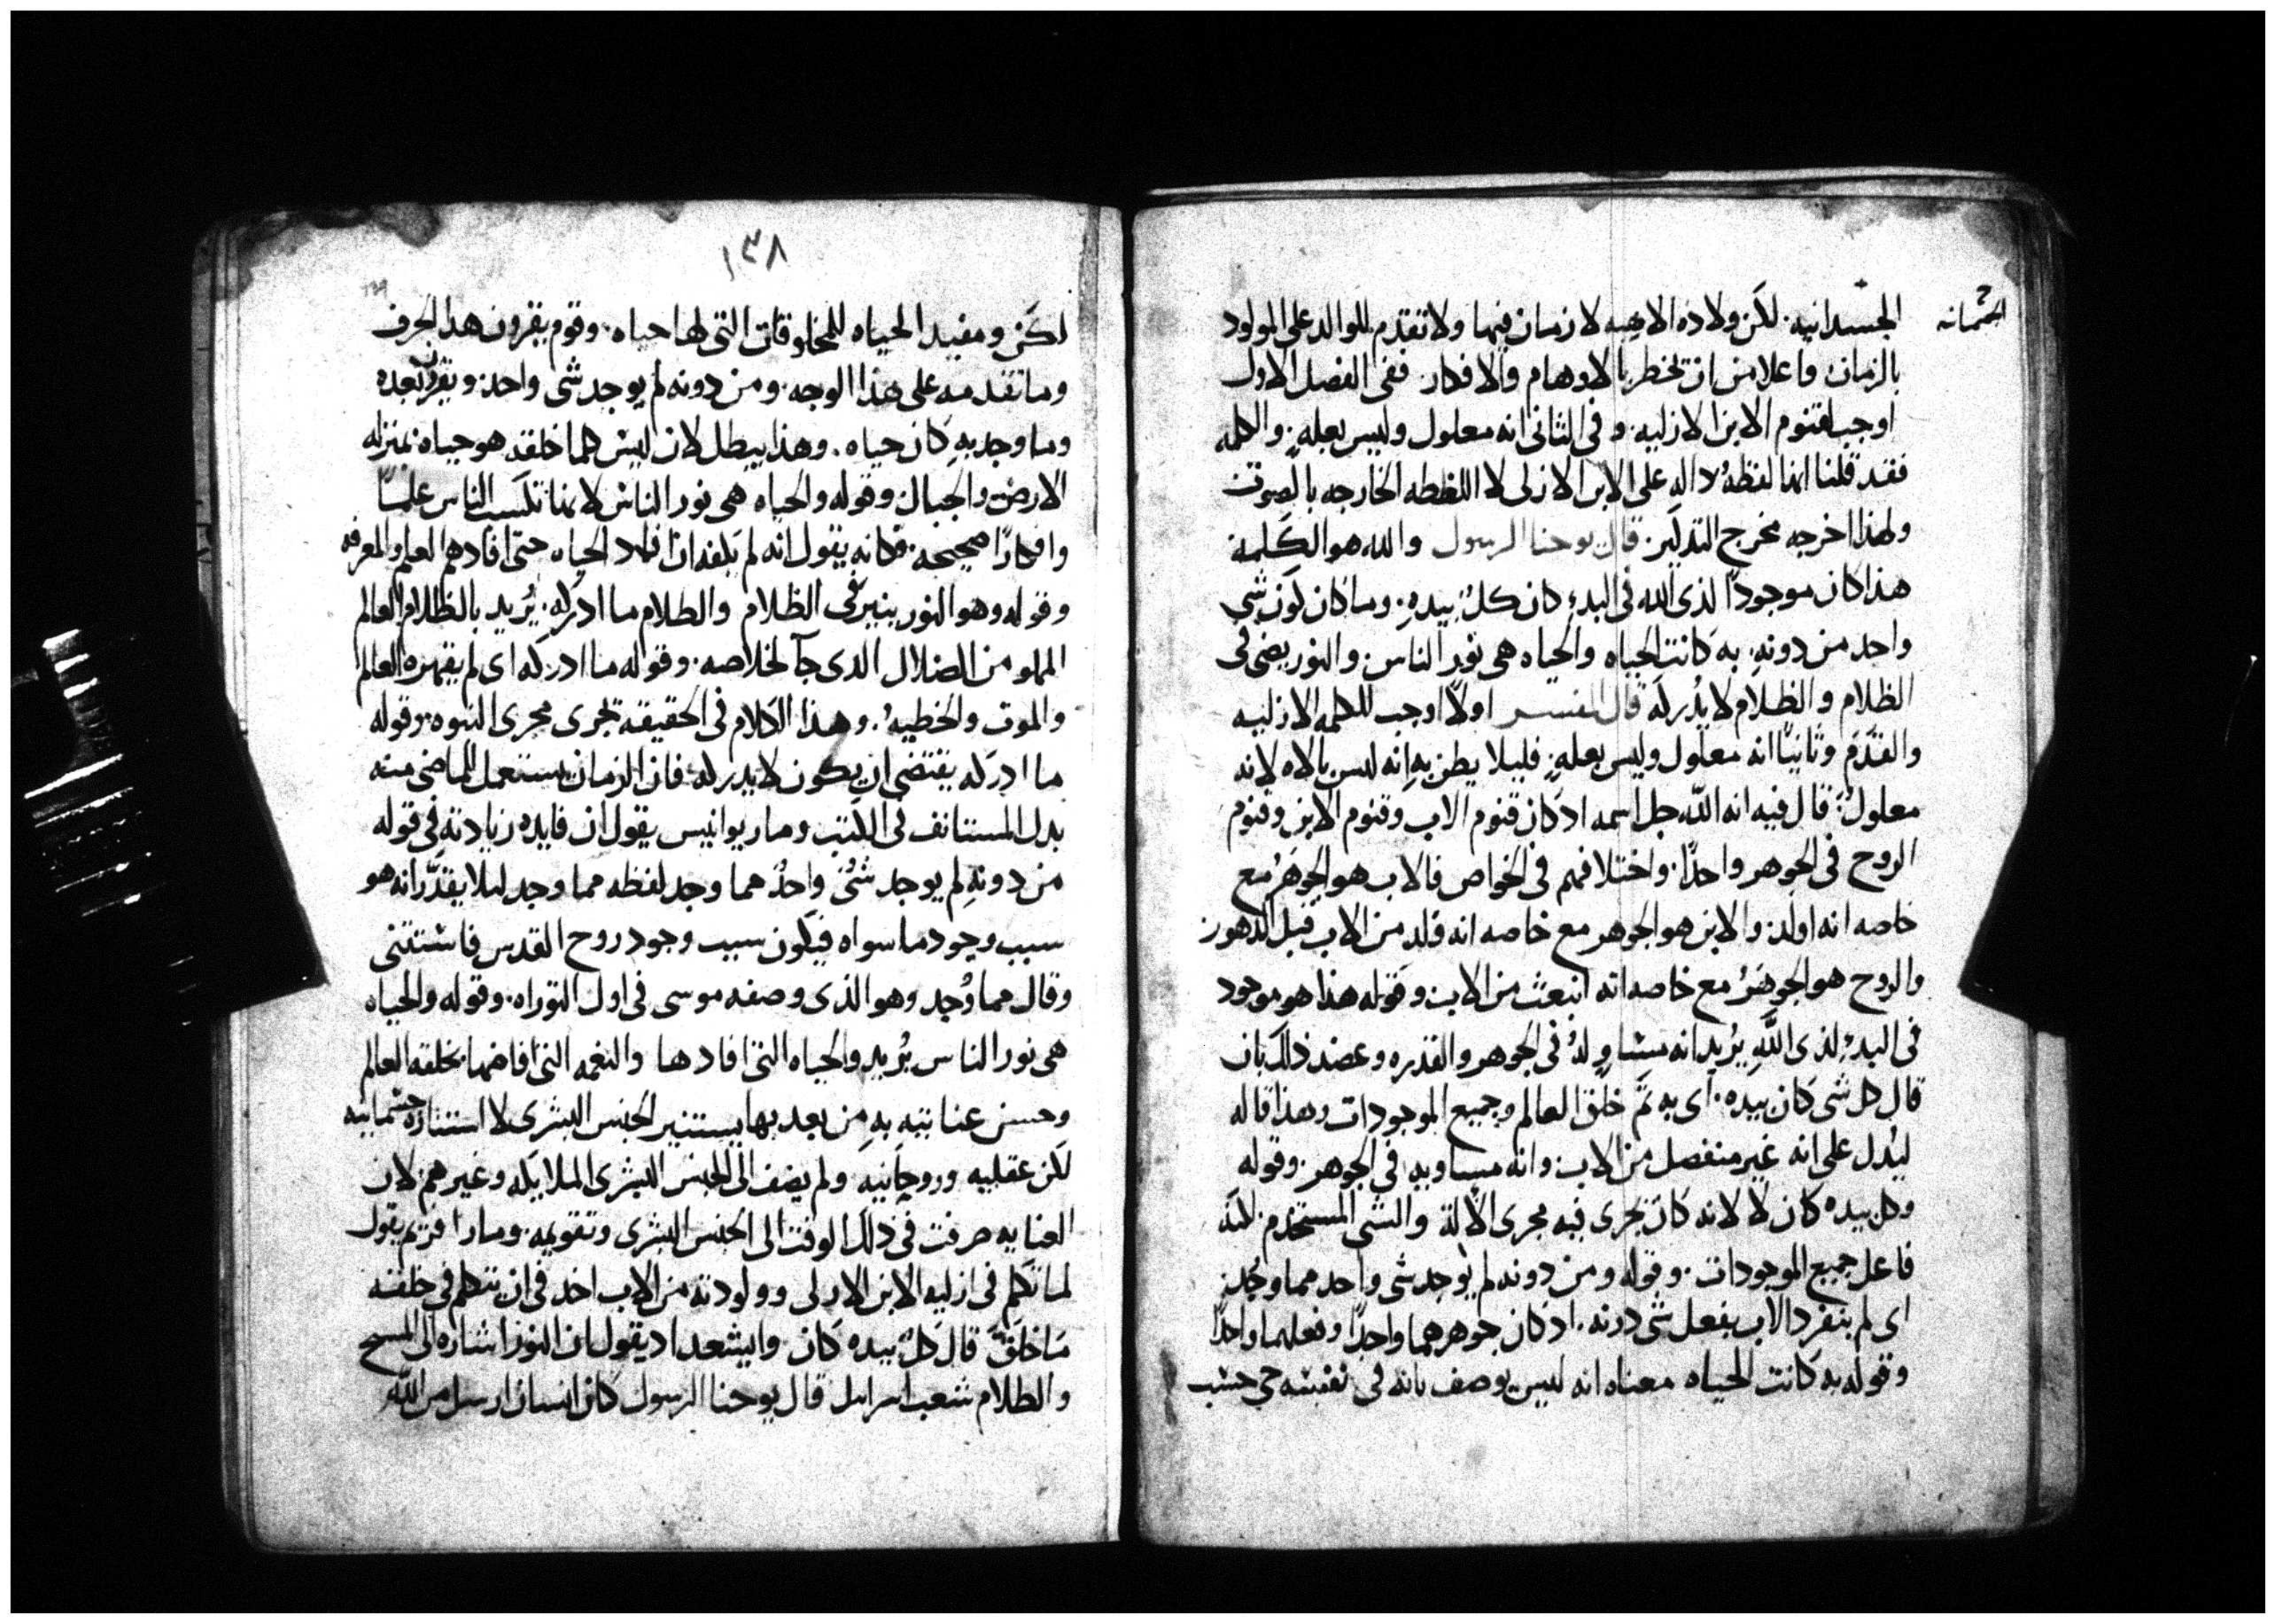 الجسدانيه. لكن ولاده الالاهيه لا زمان فيها ولا تقدم للوالد على المولود
الجسمانيه
بالزمان واعلا من ان تخطر بالاوهام والافكار. ففى الفصل الاول
اوجب لقنوم الابن الازليه. وفى الثانى انه معلول وليس بعله. والكلمه
فقد قلنا انها لفظه داله على الابن الازلى لا اللفظه الخارجه بالصوت
ولهذا اخرجه مخرج التدكير. قال يوحنا الرسول والله هو الكلمة
هذا كان موجودًا لذى الله فى البدء كان كلٌ بيدهِ. وما كان كون شى
واحد من دونهِ. به كانت الحياه والحياه هى نور الناس. والنور يضى فى
الظلام والظلام لا يُدركه قال المفسر اولاً اوجب للكلمه الازليه
والقدَم وثانيًا انه معلول وليس بعلهٍ فليلا يظن بهِ انه ليس بالاه لانه
معلولٌ: قال فيه انه الله جل اسمه اد كان قنوم الاب وقنوم الابن وقنوم
الروح فى الجوهر واحدًا. واختلافهم فى الخواص فالاب هو الجوهَرُ مع
خاصه انه اولد. والابن هو الجوهر مع خاصه انه ولد من الاب قبل الدهور
والروح هو الجوهَرُ مع خاصه انه انبعث من الاب وقوله هذا هو موجود
فى البدءِ لذى اللَّهِ يُريد انه مساوٍ لهُ فى الجوهر والقدره وعضد ذلك بان
قال كل شى كان بيده. اى به تَم خلق العالم وجميع الموجودات وهذا قاله
ليُدل على انه غير منفصل من الاب. وانه مساويهِ فى الجوهر. وقوله
وكل بيده كان لا لانه كان يجرى فيه مجرى الالة والشى المستخدم. لكنه
فاعل جميع الموجودات. وقوله ومن دونه لم يوجد شى واحد مما وجُد.
اى لم ينفرد الاب بفعل شى دونه. اد كان جوهرهما واحدًا وفعلهما واحدًا
وقوله به كانت الحياه معناه انه ليس يوصف بانه فى نفسه حى حسب
١٣٨
لكن ومفيد الحياه للمخلوقات التى لها حياه. وقوم يقرون هذا الحرف
وما تقدمه على هذا الوجه. ومن دونه لم يوجد شى واحد. ويقرنُ بعده
وما وجد بهِ كان حياه. وهذا يبطل لان ليش كلما خلقه هو حياه بمنزله
الارض والجبال. وقوله والحياه هى نور الناس لانها تكسب الناس علمًا
وافكارًا صحيحه. فكانه يقول انه لم يكفه ان افاد الحياه حتى افادهم العلم والمعرفه
وقوله وهو النور ينير فى الظلام والظلام ما ادركه. يُريد بالظلام العالم
المملو من الضلال الدى جآ لخلاصه. وقوله ما ادركه اى لم يقهره العالم
والموت والخطيه. وهذا الكلام فى الحقيقه يجرى مجرى النبوه. وقوله
ما ادركه يقتضى ان يكون لا يدركه. فان الزمان يستعمل الماضى منه
بدل المستانف فى الكتب ومار يوانيس يقول ان فايده زيادته فى قوله
من دونهِ لم يوجد شىٌ واحدٌ مما وجد لفظه مما وجد ليلا يقدَّر انه هو
سبب وجود ما سواه فيكون سبب وجود روح القدس فاستثنى
وقال مما وُجد وهو الذى وصفه موسى فى اول التوراه. وقوله والحياه
هى نور الناس يُريد والحياه التى افادها والنعمه التى افاضها بخلقه العالم
وحسن عنايته بهِ من بعد بها يستنير الجنس البشرى لا استناره جسمانيه
لكن عقليه وروحانيه ولم يضف الى الجنس البشرى الملايكه وغيرهم لان
العنايه صرفت فى ذلك الوقت الى الجنس البشرى وتقويمه. ومار افريم يقول
لما تكلم فى ازليه الابن الازلى وولودته من الاب اخد فى ان يتكلم فى خلقته
مَا خلَقَ قال كلٌ بيده كان وايشعداد يقول ان النور اشاره الى المسيح
والظلام شعب اسرايل قال يوحنا الرسول كان انسان ارسل من الله